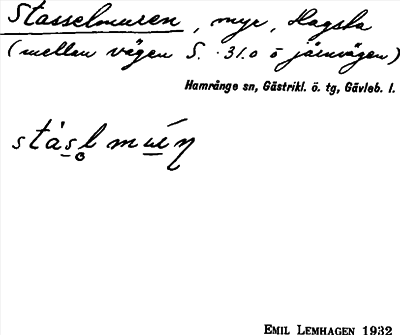 Stasselmuren, myr, Hagsta
(mellan vägen S. 31.0 o järnvägen)
Hamrånge sn, Gästrikl. ö. tg, Gävleb. l.
EMIL LEMHAGEN 1932